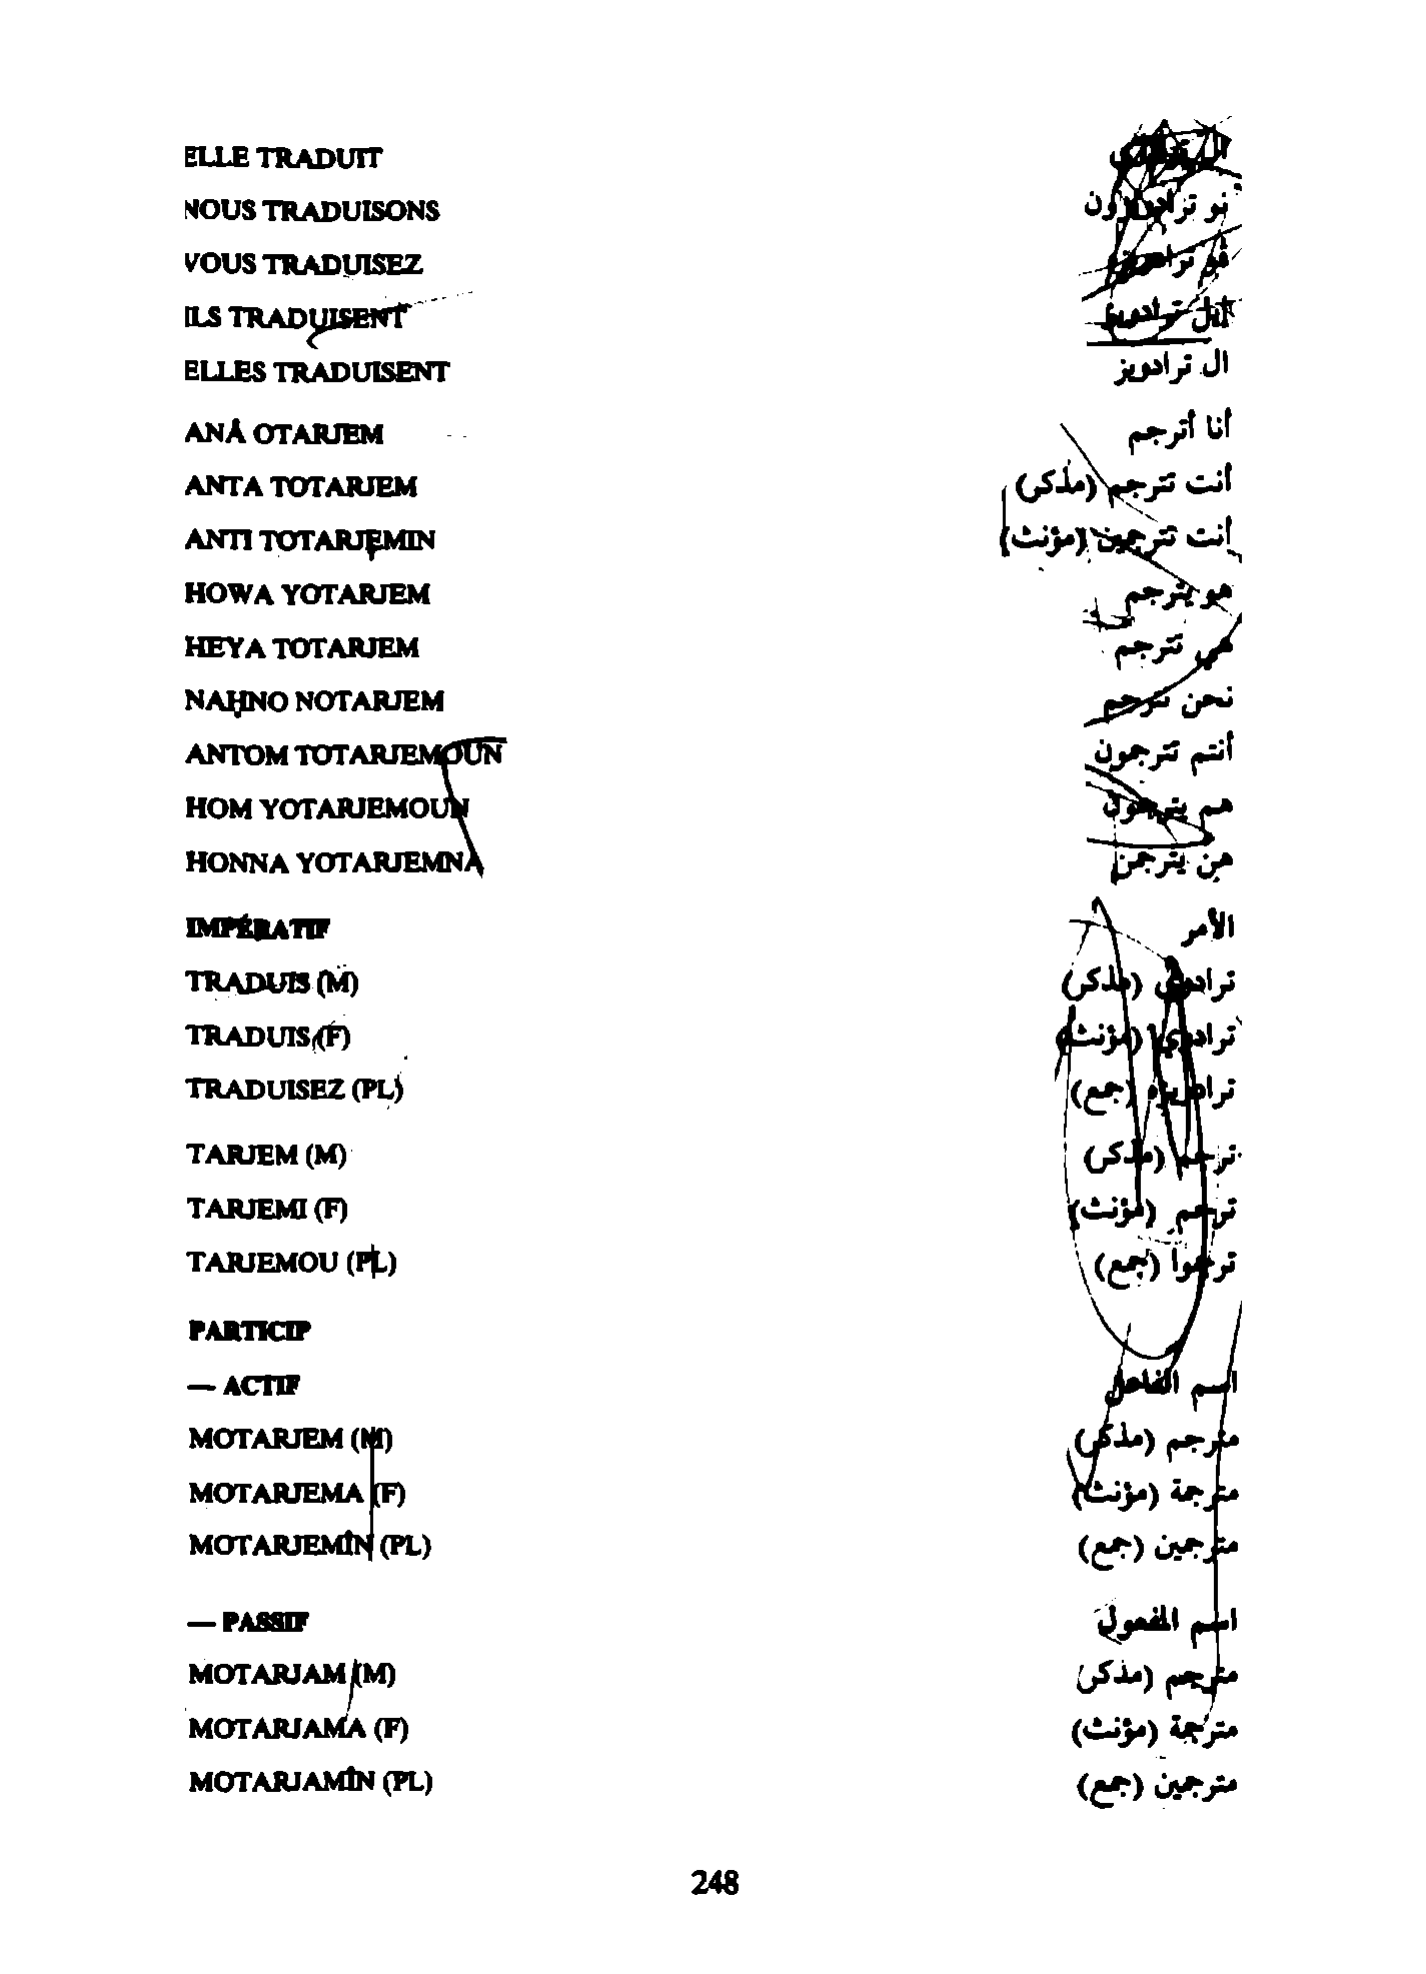 ELLE TRADUIT ال
NOUS TRADUISONS نو
VOUS TRADUISEZ ڤو
ILS TRADUISENT ترادويز
ELLES TRADUISENT ال ترادويز
ANÂ OTARJEM أنا أترجم
ANTA TOTARJEM أنت تترجم (مذكر)
ANTI TOTARJEMIN أنت تترجمين (مؤنث)
HOWA YOTARJEM هو يترجم
HEYA TOTARJEM هي تترجم
NAḤNO NOTARJEM نحن نترجم
ANTOM TOTARJEMOUN أنتم تترجمون
HOM YOTARJEMOUN هم يترجمون
HONNA YOTARJEMNA هن يترجمن
IMPÉRATIF الأمر
TRADUIS (M) ترادوي (مذكر)
TRADUIS (F) ترادوي (مؤنث)
TRADUISEZ (PL) ترادويزه (جمع)
TARJEM (M) ترجم (مذكر)
TARJEMI (F) ترجم (مؤنث)
TARJEMOU (PL) ترجموا (جمع)
PARTICIP
— ACTIF اسم الفاعل
MOTARJEM (M) مترجم (مذكر)
MOTARJEMA (F) مترجمة (مؤنث)
MOTARJEMÎN (PL) مترجمين (جمع)
— PASSIF اسم المفعول
MOTARJAM (M) مترجم (مذكر)
MOTARJAMA (F) مترجمة (مؤنث)
MOTARJAMÎN (PL) مترجمين (جمع)
248